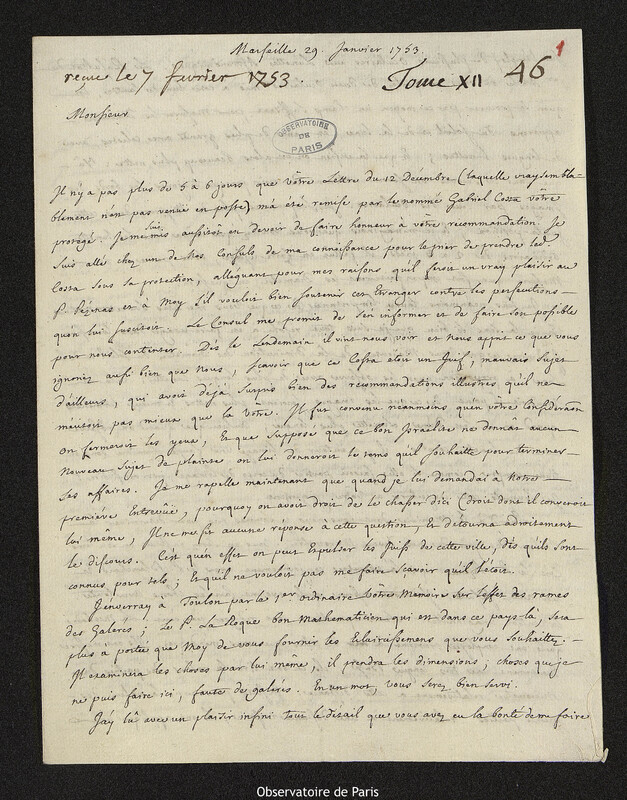 Marseille 29. Janvier 1753.
reçue le 7 fevrier 1753.
Tome XII 46
1
Monsieur
OBSERVATOIRE
DE
PARIS
Il n'y a pas plus de 5 à 6 jours que vôtre Lettre du 12 Decembre (laquelle vraysembla=
blement n'en pas venüe en poste) m'a été remise par le nommé Gabriel Costa vôtre
protégé. Je me suis mis aussitôt en devoir de faire honneur à vôtre recommandation. Je
suis allé chez un de Nos Consuls de ma connoissance pour le prier de prendre led.
Costa sous sa protection, alleguant pour mes raisons qu'il feroit un vray plaisir au
P. Pézenas et à Moy s'il vouloit bien soutenir cet Etranger contre les persecutions
qu'on lui suscitoit. Le Consul me promit de s'en informer et de faire son possible
pour nous contenter. Dès le Lendemain il vint nous voir et nous apprit ce que vous
ignoriez aussi bien que Nous, sçavoir que ce Costa etoit un Juif, mauvais sujet
d'ailleurs, qui avoit déjà surpris bien des recommandations illustres qu'il ne
méritoit pas mieux que la vôtre. Il fut convenu néanmoins qu'en vôtre Consideraon
on fermeroit les yeux, Et que supposé que ce bon Israëlite ne donnât aucun
Nouveau sujet de plainte on lui donneroit le tems qu'il souhaitte pour terminer
ses affaires. Je me rapelle maintenant que quand je lui demandai à Notre
premiére Entrevüe, pourquoy on avoit droit de le chasser d'ici (droit dont il convenoit
lui meme, Il ne me fit aucune réponse à cette question, Et detourna adroitement
le discours. C'est qu'en effet on peut Expulser les Juifs de cette ville, dès qu'ils sont
connus pour tels; Et qu'il ne vouloit pas me faire sçavoir qu'il l'étoit.
J'enverray à Toulon par le 1.er ordinaire vôtre Memoire sur l'effet des rames
des Galeres; Le P. La Roque bon Mathematicien qui est dans ce pays-là, sera
plus à portée que Moy de vous fournir les Eclaircissemens que vous souhaittez.
Il examinera les choses par lui meme, il prendra les dimensions; choses que je
ne puis faire ici, faute de galéres. En un mot, vous serez bien servi.
J'ay lû avec un plaisir infini tout le détail que vous avez eu la bonté de me faire
Observatoire de Paris